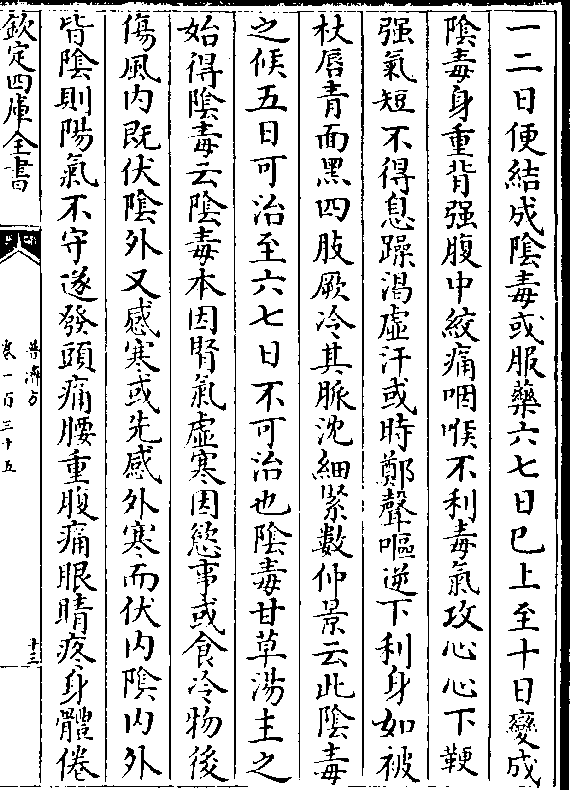 一二日便結成陰毒或服藥六七日已上至十日變成
陰毒身重背强腹中絞痛咽喉不利毒氣攻心心下鞕
强氣短不得息躁渴虛汗或時鄭聲嘔逆下利身如被
杖唇青面黑四肢厥冷其脈沈細緊數仲景云此陰毒
之候五日可治至六七日不可治也陰毒甘草湯主之
始得陰毒云陰毒本因腎氣虛寒因慾事或食冷物後
傷風内既伏陰外又感寒或先感外寒而伏内陰内外
皆陰則陽氣不守遂發頭痛腰重腹痛眼睛疼身體倦
欽定四庫全書
普濟方
卷一百三十五
十三